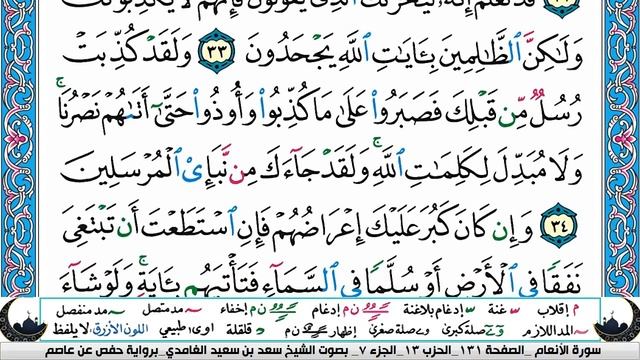 قَدْ نَعْلَمُ إِنَّهُۥ لَيَحْزُنُكَ ٱلَّذِى يَقُولُونَ فَإِنَّهُمْ لَا يُكَذِّبُونَكَ
وَلَٰكِنَّ ٱلظَّٰلِمِينَ بِـَٔايَٰتِ ٱللَّهِ يَجْحَدُونَ ٣٣ وَلَقَدْ كُذِّبَتْ
رُسُلٌ مِّن قَبْلِكَ فَصَبَرُوا۟ عَلَىٰ مَا كُذِّبُوا۟ وَأُوذُوا۟ حَتَّىٰٓ أَتَىٰهُمْ نَصْرُنَا ۚ
وَلَا مُبَدِّلَ لِكَلِمَٰتِ ٱللَّهِ ۚ وَلَقَدْ جَآءَكَ مِن نَّبَإِى۟ ٱلْمُرْسَلِينَ
٣٤ وَإِن كَانَ كَبُرَ عَلَيْكَ إِعْرَاضُهُمْ فَإِنِ ٱسْتَطَعْتَ أَن تَبْتَغِىَ
نَفَقًا فِى ٱلْأَرْضِ أَوْ سُلَّمًا فِى ٱلسَّمَآءِ فَتَأْتِيَهُم بِـَٔايَةٍ ۚ وَلَوْ شَآءَ
م إقلاب غنة إدغام بلاغنة ن م إدغام ن م إخفاء مد متصل مد منفصل
المد اللازم صلة كبرى صلة صغرى إظهار ن م قلقلة اوى طبيعي اللون الأزرق لا يلفظ
سورة الأنعام _الصفحة ١٣١_ الحزب ١٣_ الجزء ٧_ بصوت الشيخ سعد بن سعيد الغامدي _برواية حفص عن عاصم